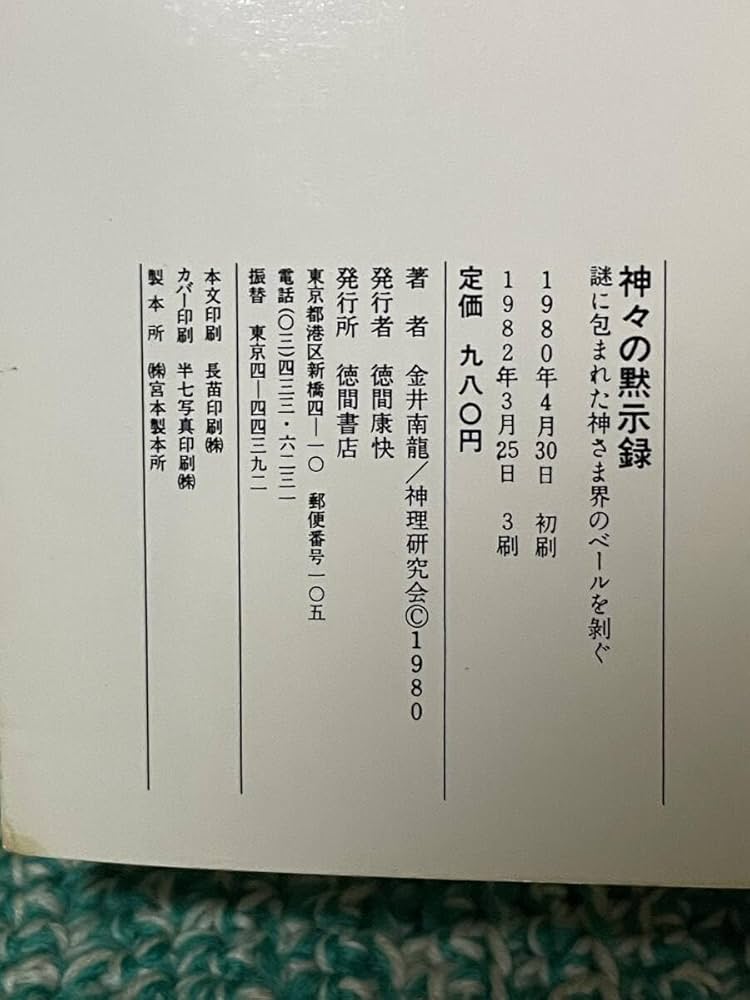 神々の黙示録
謎に包まれた神さま界のベールを剝ぐ
1980年4月30日 初刷
1982年3月25日 3刷
定価 九八〇円
著者 金井南龍／神理研究会©1980
発行者 徳間康快
発行所 徳間書店
東京都港区新橋四―一〇 郵便番号一〇五
電話(〇三)四三三・六二三一
振替 東京四―四四三九二
本文印刷 長苗印刷㈱
カバー印刷 半七写真印刷㈱
製本所 ㈱宮本製本所